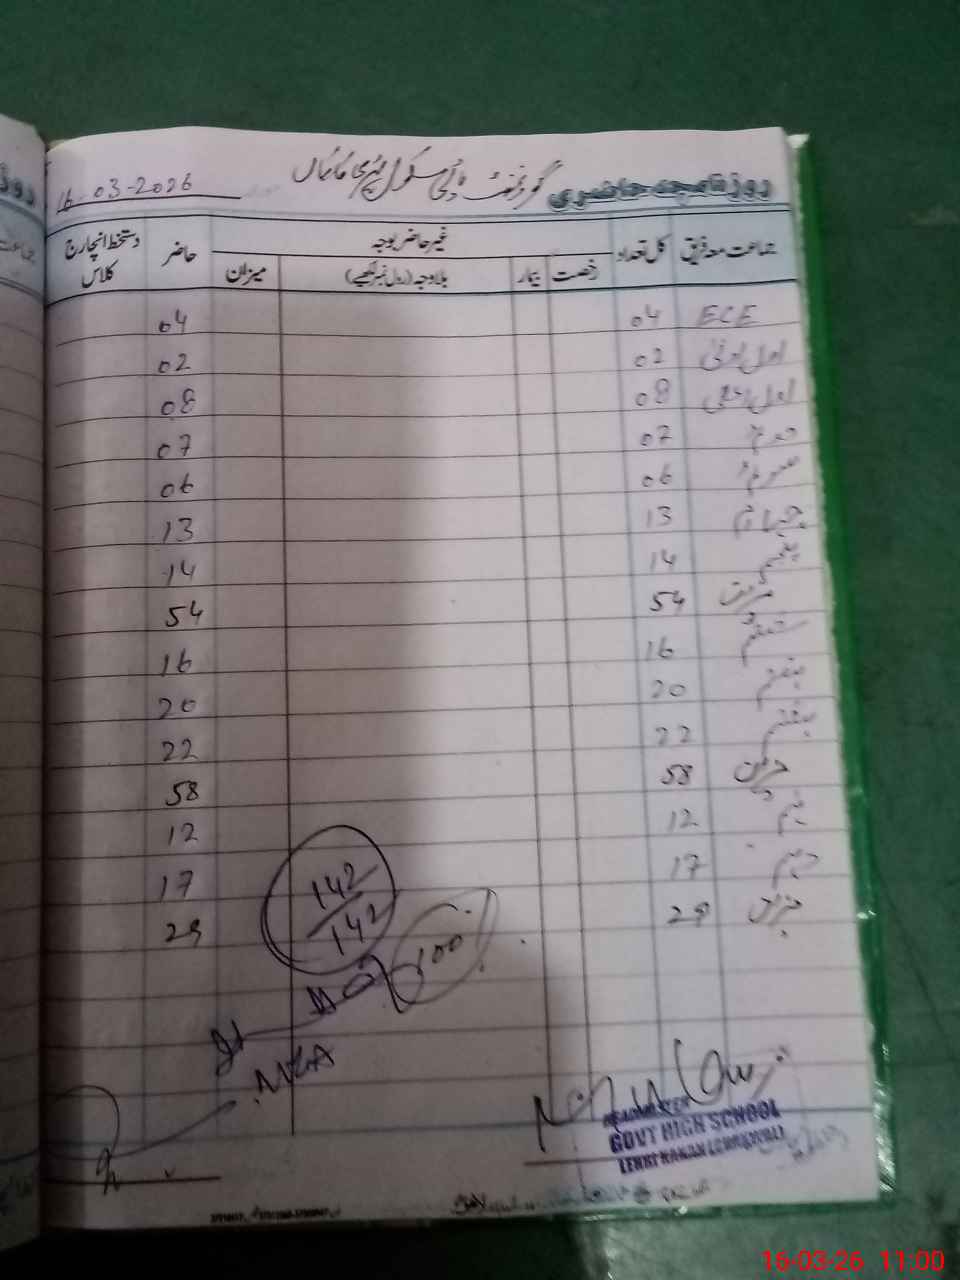 روزنامچہ حاضری گورنمنٹ ہائی سکول 16-03-2026
جماعت معہ فریق کل تعداد غیر حاضر بوجہ حاضر دستخط انچارج کلاس
رخصت بیمار بلاوجہ (رول نمبر لکھیے) میزان
ECE 04 04
اول ادنیٰ 02 02
اول اعلیٰ 08 08
دوم 07 07
سوم 06 06
چہارم 13 13
پنجم 14 14
میزان 54 54
ششم 16 16
ہفتم 20 20
ہشتم 22 22
میزان 58 58
نہم 12 12
دہم 17 17
میزان 29 29
142
142
100
MEA
HEADMASTER
GOVT HIGH SCHOOL
16-03-26 11:00